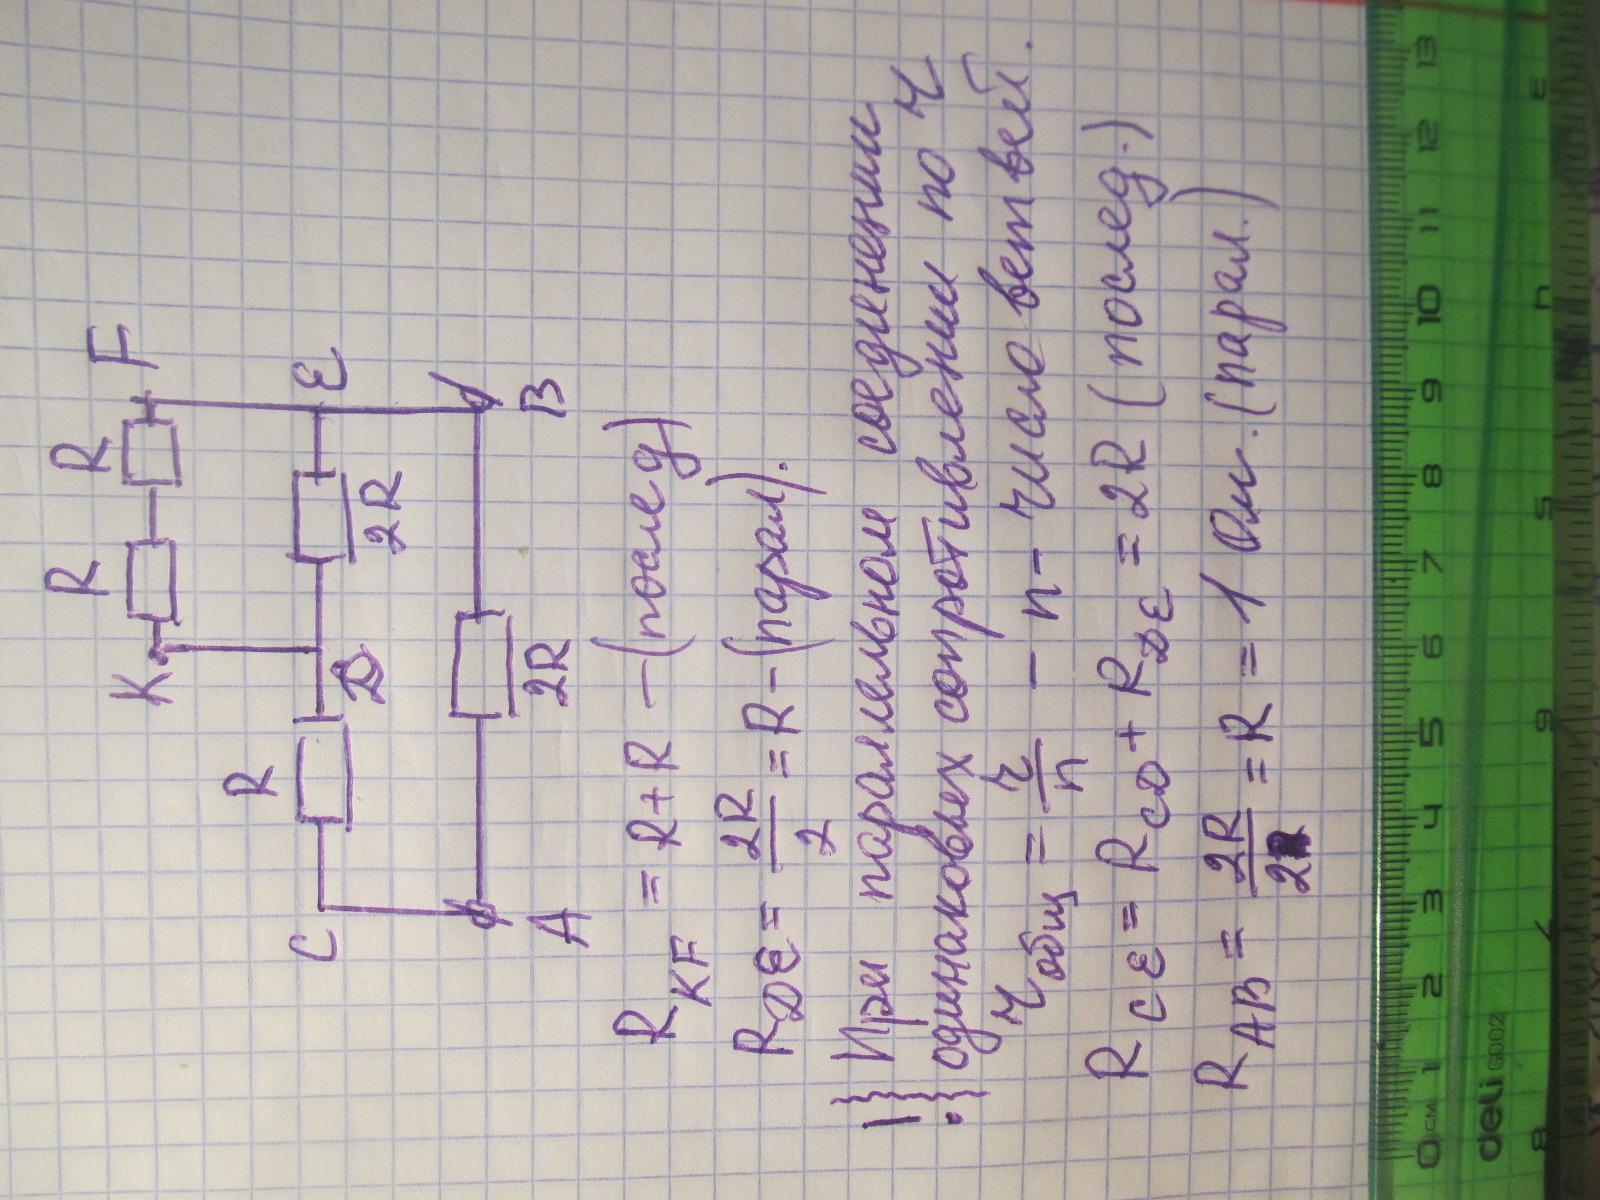 R R F
K
R 2R E
C D
2R
A B
R_KF = R+R – (послед)
R_DE = 2R/2 = R – (парал).
! При параллельном соединении
одинаковых сопротивлении по r
r_общ = r/n – n – число ветвей.
R_CE = R_CD + R_DE = 2R (послед.)
R_AB = 2R/2 = R = 1 Ом. (парал.)
0 см 1 2 3 4 5 6 7 8 9 10 11 12 13
deli 6002